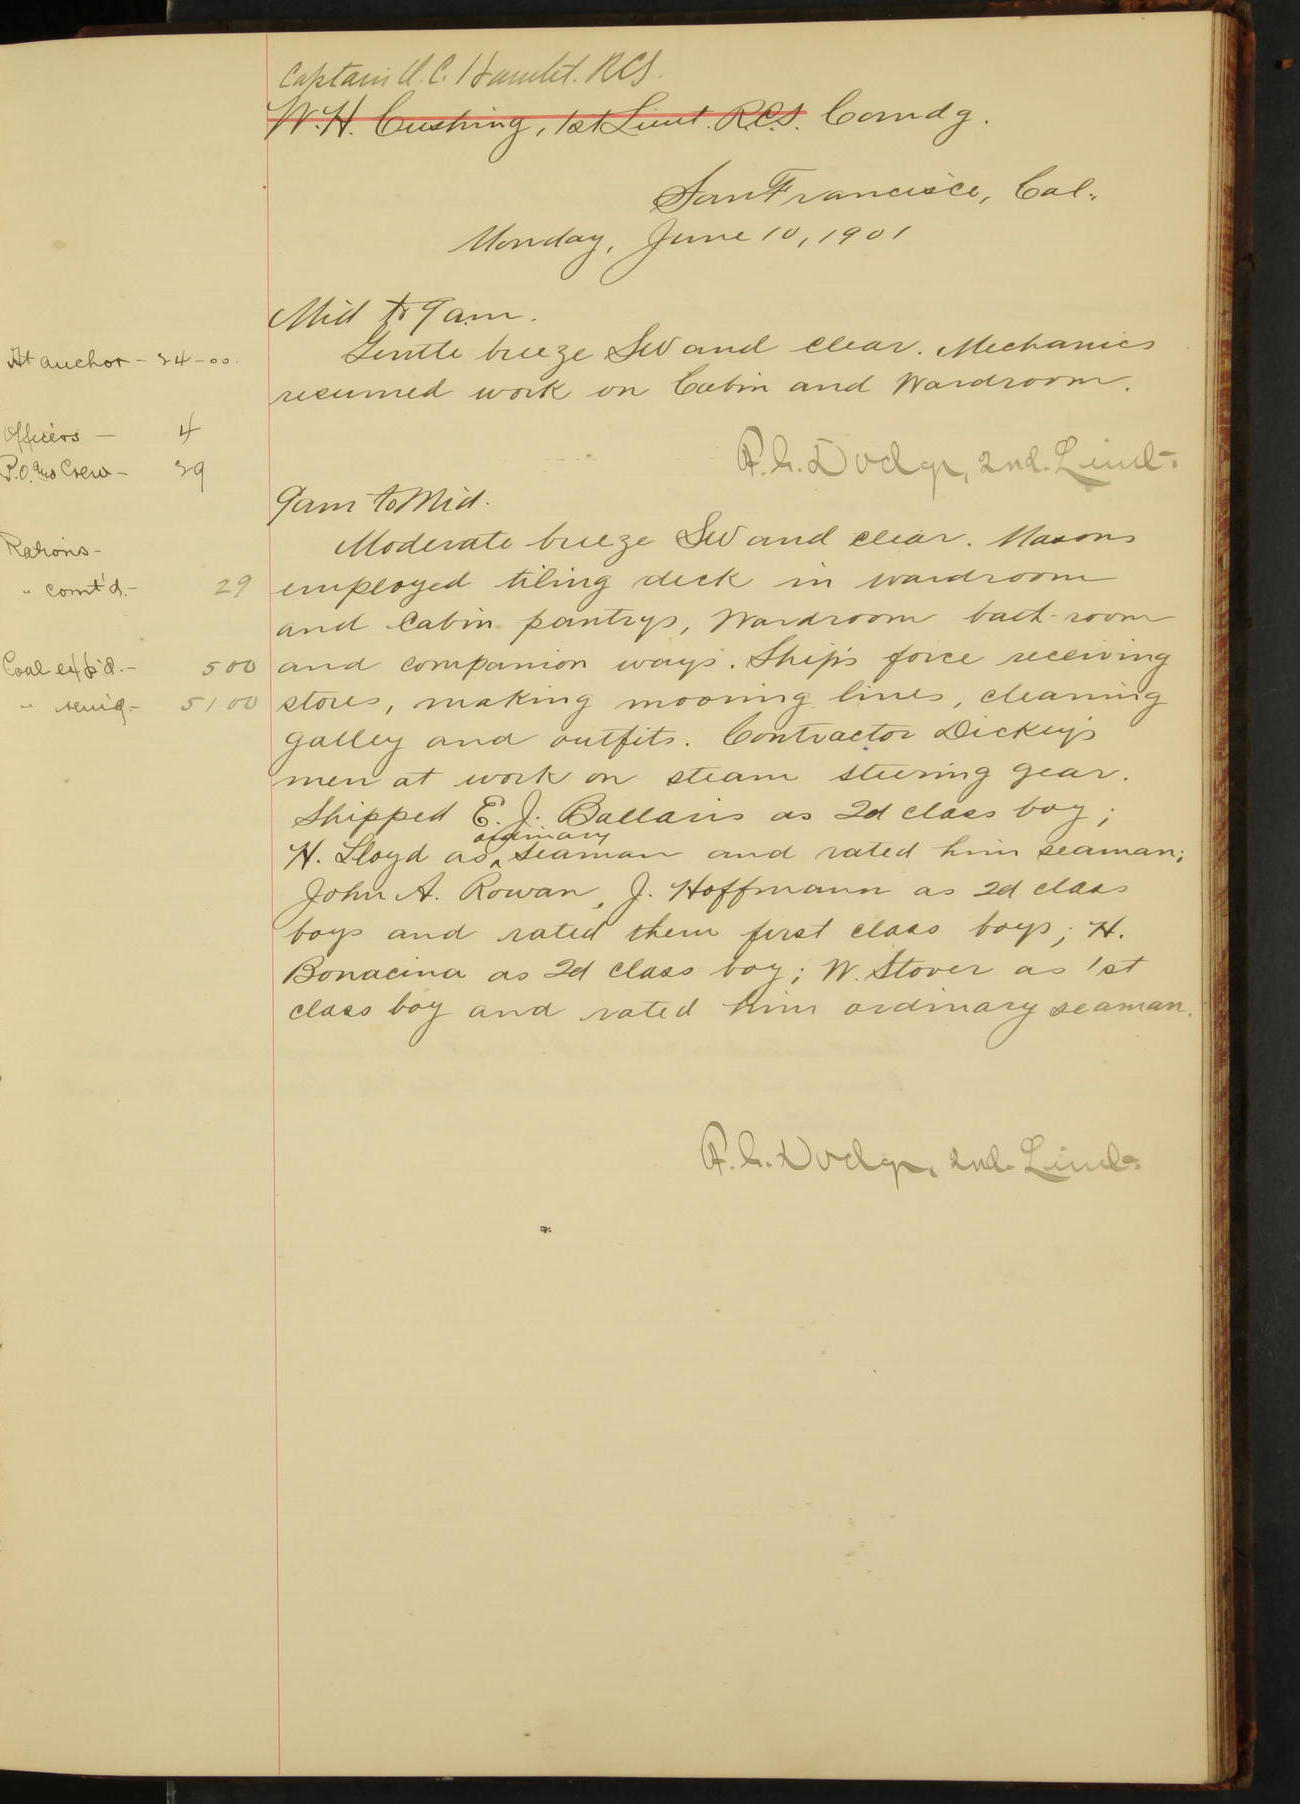 Captain O.C. Hamlet. RCS.
W. H. Cushing, 1st Lieut. R.C.S. Comdg.
San Francisco, Cal.
Monday, June 10, 1901
Mid to 9 am.
Gentle breeze SW and clear. Mechanics
resumed work on Cabin and Wardroom.
At anchor - 24-00.
Officers - 4
P.O. and Crew - 39
F. G. Dodge, 2nd. Lieut.
9 am to Mid.
Moderate breeze SW and clear. Masons
employed tiling deck in wardroom
and Cabin pantrys, Wardroom bath-room
and companion ways. Ship's force receiving
stores, making mooring lines, cleaning
galley and outfits. Contractor Dickey's
men at work on steam steering gear.
Shipped E. J. Ballaris as 2d class boy;
H. Lloyd as ordinary seaman and rated him seaman;
John A. Rowan, J. Hoffmann as 2d class
boys and rated them first class boys; H.
Bonacina as 2d class boy; W. Stover as 1st
class boy and rated him ordinary seaman.
Rations-
" comt'd.- 29
Coal exp'd.- 500
" rem'g- 5100
F. G. Dodge, 2nd. Lieut.